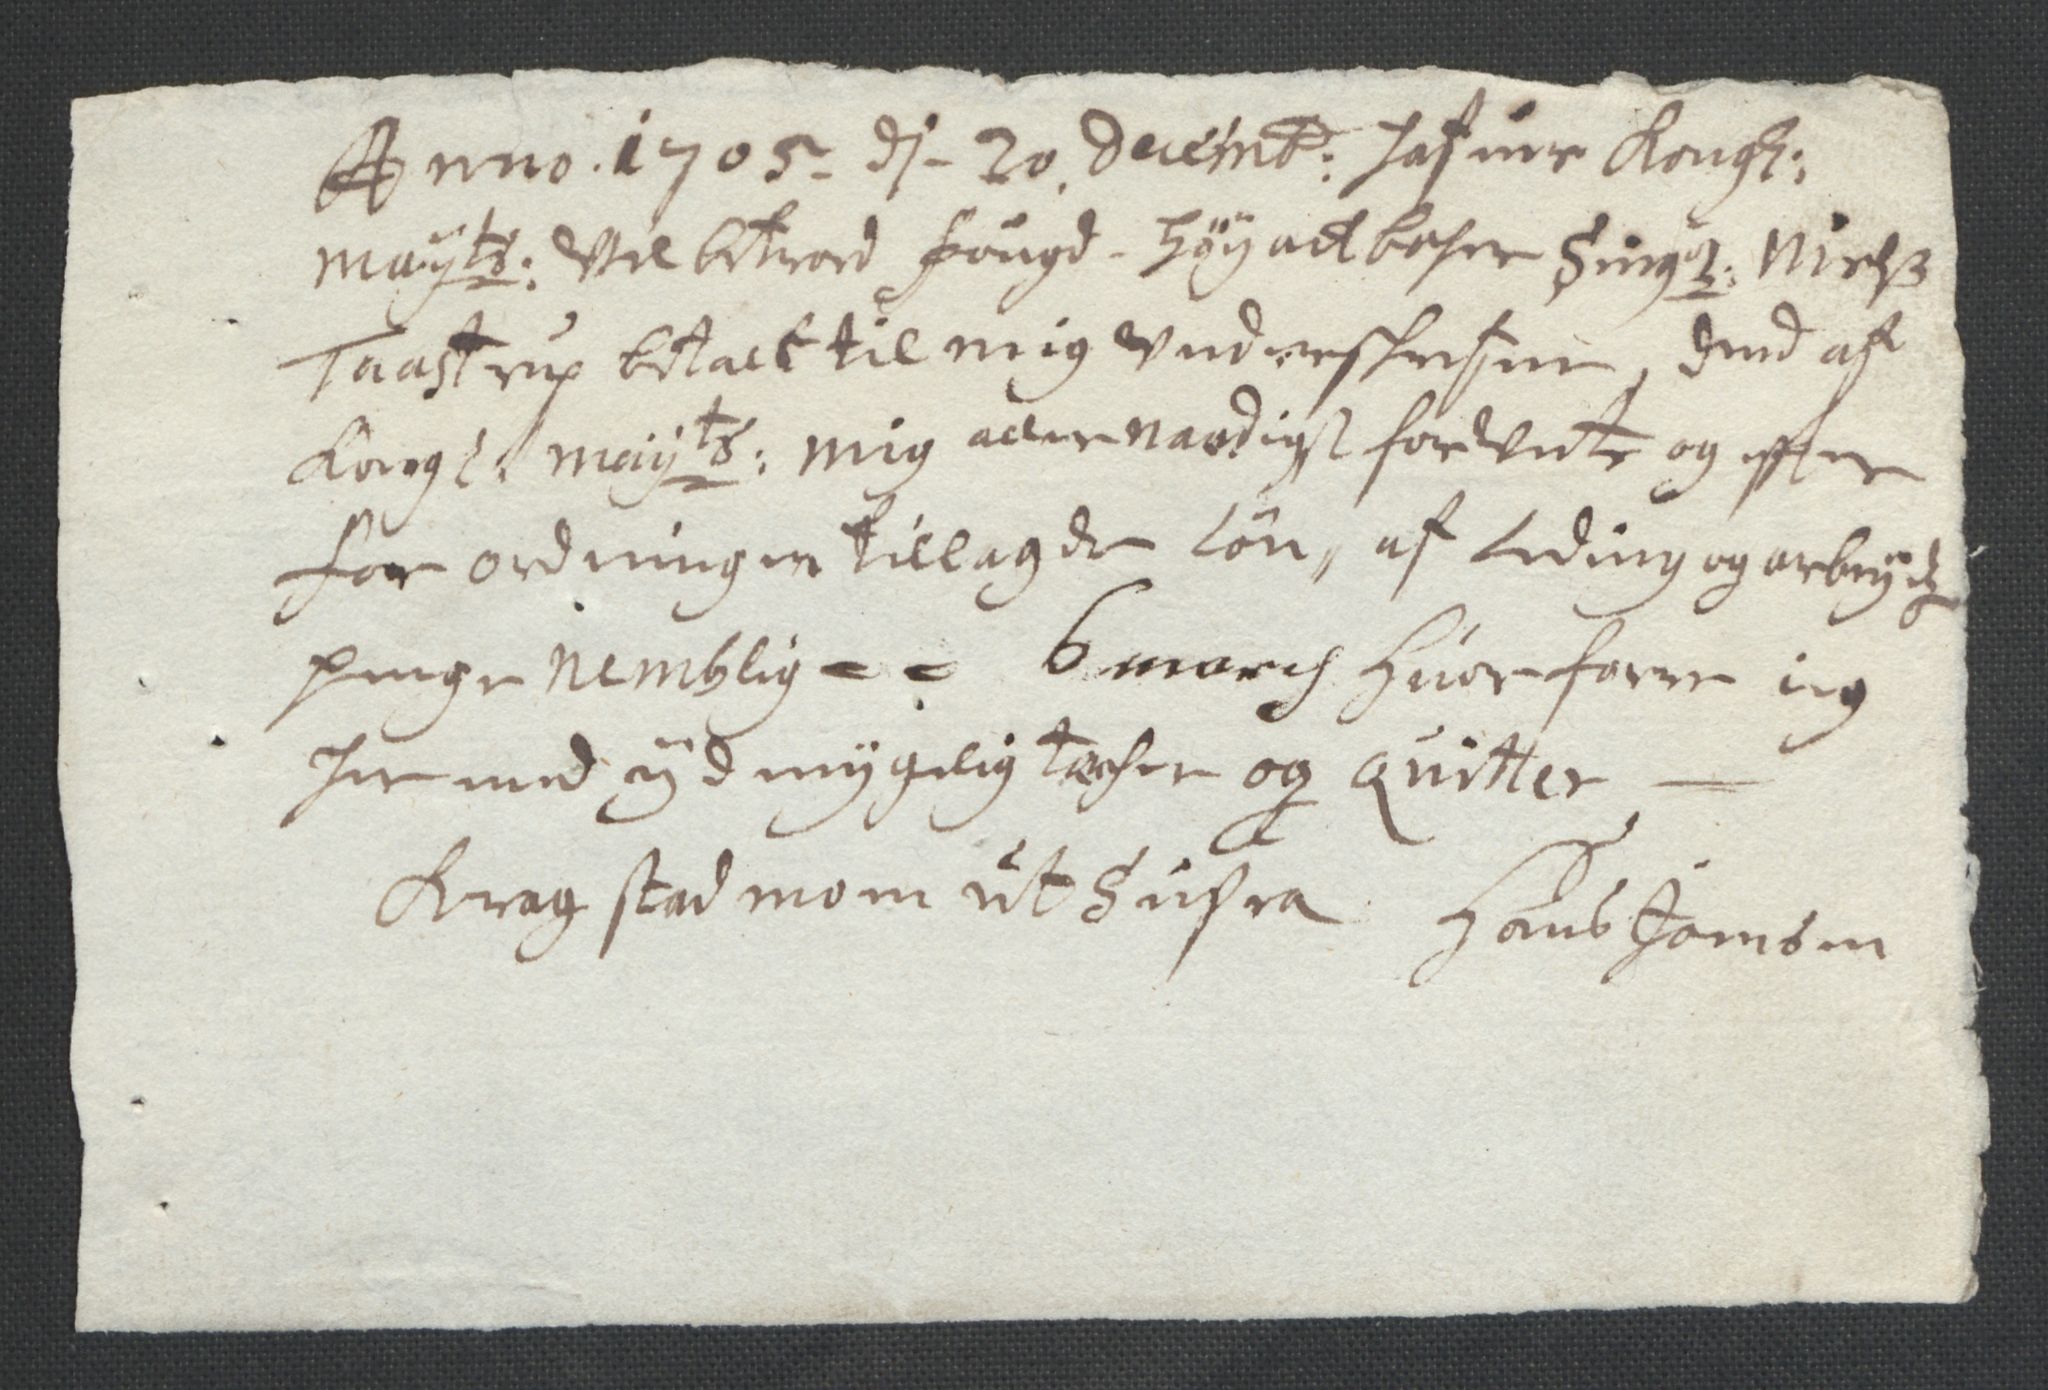 Anno. 1705 dj 20. Decemb: Hafuer Kongl:
mayts: Velbetroed Fougd Høyactbahre Sing: Nielss
Taastrup betalt til mig Underskrefune, dend af
Kongl: mayts: mig allernaadigst forUnte og effter
for ordningen tillagde Løn, af Leding og arbeyds
penge Nemblig 6 march Huorforre ieg
her med ÿdmÿgelig tacher og Quitter
Kragstadmoen ut Supra Hans Joensen